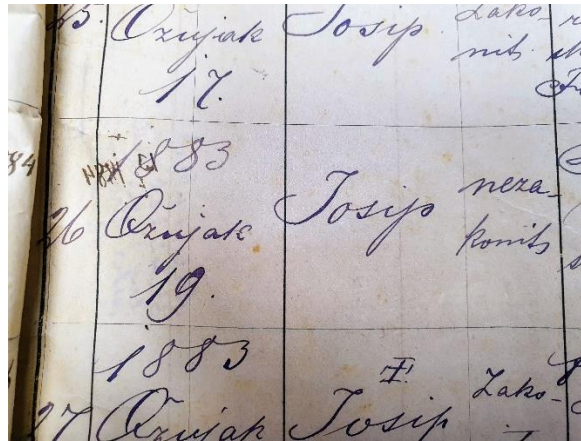 25. Ožujak Josip zako-
nit
17.
1883
26 Ožujak Josip neza-
konit
19.
1883
27 Ožujak Josip zako-